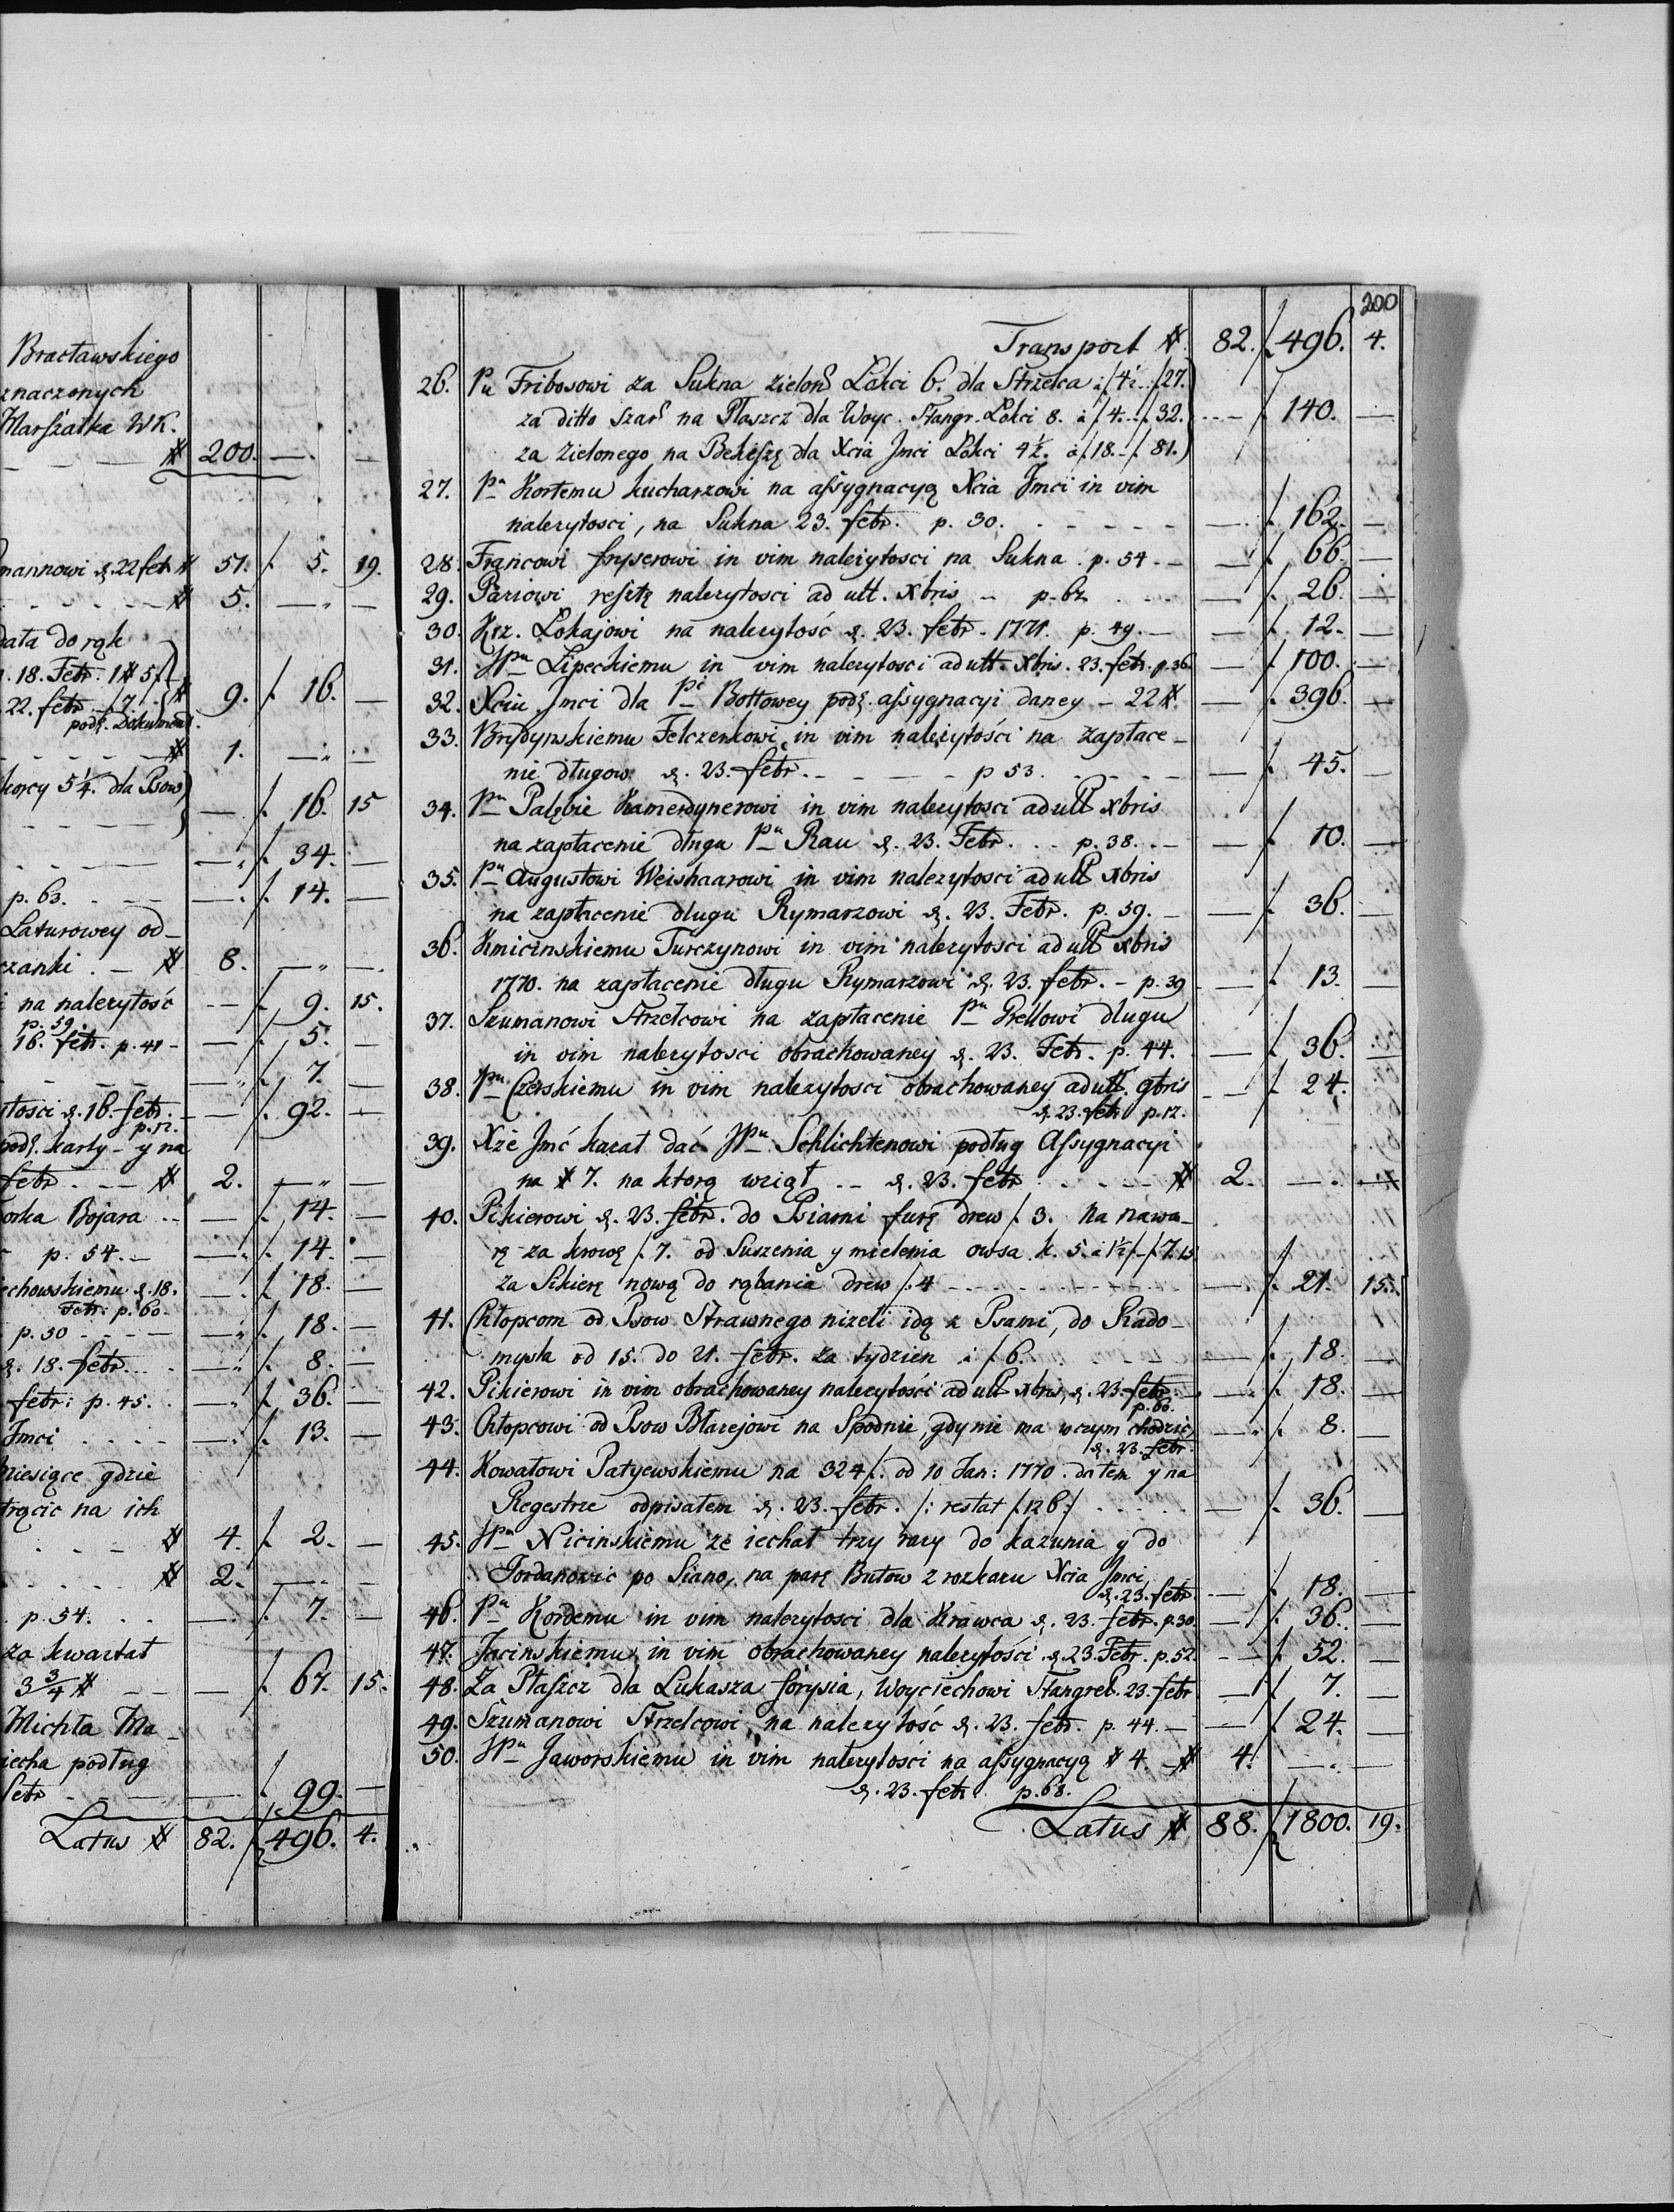 Bracławskiego
znaczonych
Marszałka WK.
# 200. —. —
mannowi d. 22 febr # 51. f. 5. 19.
# 5. —„ —
dała do rąk
18. Febr: 1 # 5 f
22. febr. f 7. f. # 9. f. 16. —
podł. Dokument.
# 1. —„ —
korcy 5 1/4. dla Psow
— f. 16. 15
—„ f. 34. —
p. 63. —. f. 14. —
Laturowey od-
czanki. — # 8. —„ —.
na nalezytosć — f. 9. 15.
p. 59.
16. febr. p. 41 — — f. 5. —
—„ f. 7. —
tosci d. 16. febr. — — f. 92. —
p. 12.
podł. karty — y na
febr. — # 2. —„ —
orka Bojara — — f. 14. —
p. 54. — —„ f. 14. —
echowskiemu d. 18. —. f. 18. —
Febr: p. 60.
p. 50 — — —„ f. 18. —
d. 18. febr. —„ f. 8. —
febr: p. 45. —„ f. 36. —
Jmci —„ f. 13. —
miesiące gdzie
trącic na ich
# 4. f. 2. —
# 2. —. —
p. 54. — f. 7. —
za kwartał
3 3/4 # — — f. 67. 15.
Michta Ma-
iecha podług
febr — — f. 99. —
Latus # 82. f. 496. 4.
200
Transport # 82. f. 496. 4.
26. Pu Fribosowi za Sukna zielond Łokci 6. dla Strzelca à f 4 1/2. f 27.)
za ditto szard na Płaszcz dla Woyc. Stangr. Łokci 8. à f. 4. f. 32. — f. 140. —
za zielonego na Bekiszę dla Xcia Jmci Łokci 4 1/2. à f. 18. — f. 81.)
27. Pu Kortemu kucharzowi na assygnacyą Xcia Jmci in vim
nalezytosci, na Sukna 23. febr. p. 30. — f. 162. —
28. Francowi fryserowi in vim nalezytosci na Sukna p. 54. — — f. 66. —
29. Pariowi resztę nalezytosci ad ult. xbris — p. 62 — f. 26. —
30. Krz. Lokajowi na nalezytosć d. 23. febr. 1771. p. 49. — — f. 12. —
31. JPu Lipeckiemu in vim nalezytosci ad ult. xbris. 23. febr. p. 36 — f. 100. —
32. Xciu Jmci dla Pi Bottowey podł. assygnacyi daney — 22 #. — f. 396. —
33. Brydynskiemu Felczerkowi in vim nalezytości na zapłace-
nie długow d. 23. febr. — p 53. — f. 45. —
34. Pu Palębie Kamerdynerowi in vim nalezytosci ad ult xbris
na zapłacenie długu Pu Rau d. 23. Febr. p. 38. — — f. 10. —
35. Pu Augustowi Weishaarowi in vim nalezytosci ad ult xbris
na zapłacenie dlugu Rymarzowi d. 23. Febr. p. 59. — — f. 36. —
36. Kmicinskiemu Turczynowi in vim nalezytosci ad ult xbris
1770. na zapłacenie długu Rymarzowi d. 23. febr. — p. 39 — f. 13. —
37. Szumanowi Strzelcowi na zapłacenie Pu Prellowi dlugu
in vim nalezytosci obrachowaney d. 23. Febr. p. 44. — f. 36. —
38. JPu Czerskiemu in vim nalezytosci obrachowaney ad ult. 9bris — f. 24. —
d. 23. febr p. 12.
39. Xże Jmć kazał dać JPu Schlichtenowi podług Assygnacyi
na # 7. na ktorą wziął — d. 23. febr — # 2. —. —
40. Pikierowi d. 23. febr. do Psiarni furę drew f. 3. Na nawa-
rę za krowę f. 7. od Suszenia y mielenia owsa k. 5. à 1 1/2 f. — f. 7. 15
za Sikierę nową do rąbania drew f. 4 — f. 21. 15.
41. Chłopcom od Psow Strawnego nizeli idą z Psami, do Rado-
mysla od 15. do 21. febr. za tydzien à f 6. — f. 18. —
42. Pikierowi in vim obrachowaney nalezytości ad ult xbris, d. 23. febr. — f. 18. —
p. 60.
43. Chłopcowi od Psow Błazejowi na Spodnie, gdy nie ma w czym chodzić, — f. 8. —
d. 23. febr.
44. Kowalowi Patyewskiemu na 324 f. od 10 Jan: 1770. dałem y na
Regestrze odpisałem d. 23. febr. /: restat f. 126 :/ — f. 36. —
45. JPu Nicinskiemu że iechał trzy razy do Kazunia y do
Jordanowic po Siano, na parę Butow z rozkazu Xcia Jmci
d. 23. febr. — f. 18. —
46. Pu Kordemu in vim nalezytosci dla Krawca d. 23. febr. p. 30. — f. 36. —
47. Jacinskiemu in vim obrachowaney nalezytości d. 23. Febr. p. 52. — f. 52. —
48. Za Płaszcz dla Lukasza forysia, Woyciechowi Stangret. 23. febr — f. 7. —
49. Szumanowi Strzelcowi, na nalezytosć d. 23. febr. p. 44. — — f. 24. —
50. JPu Jaworskiemu in vim nalezytości na assygnacyą # 4. — # 4. —. —
d. 23. febr p. 68.
Latus # 88. f. 1800. 19.